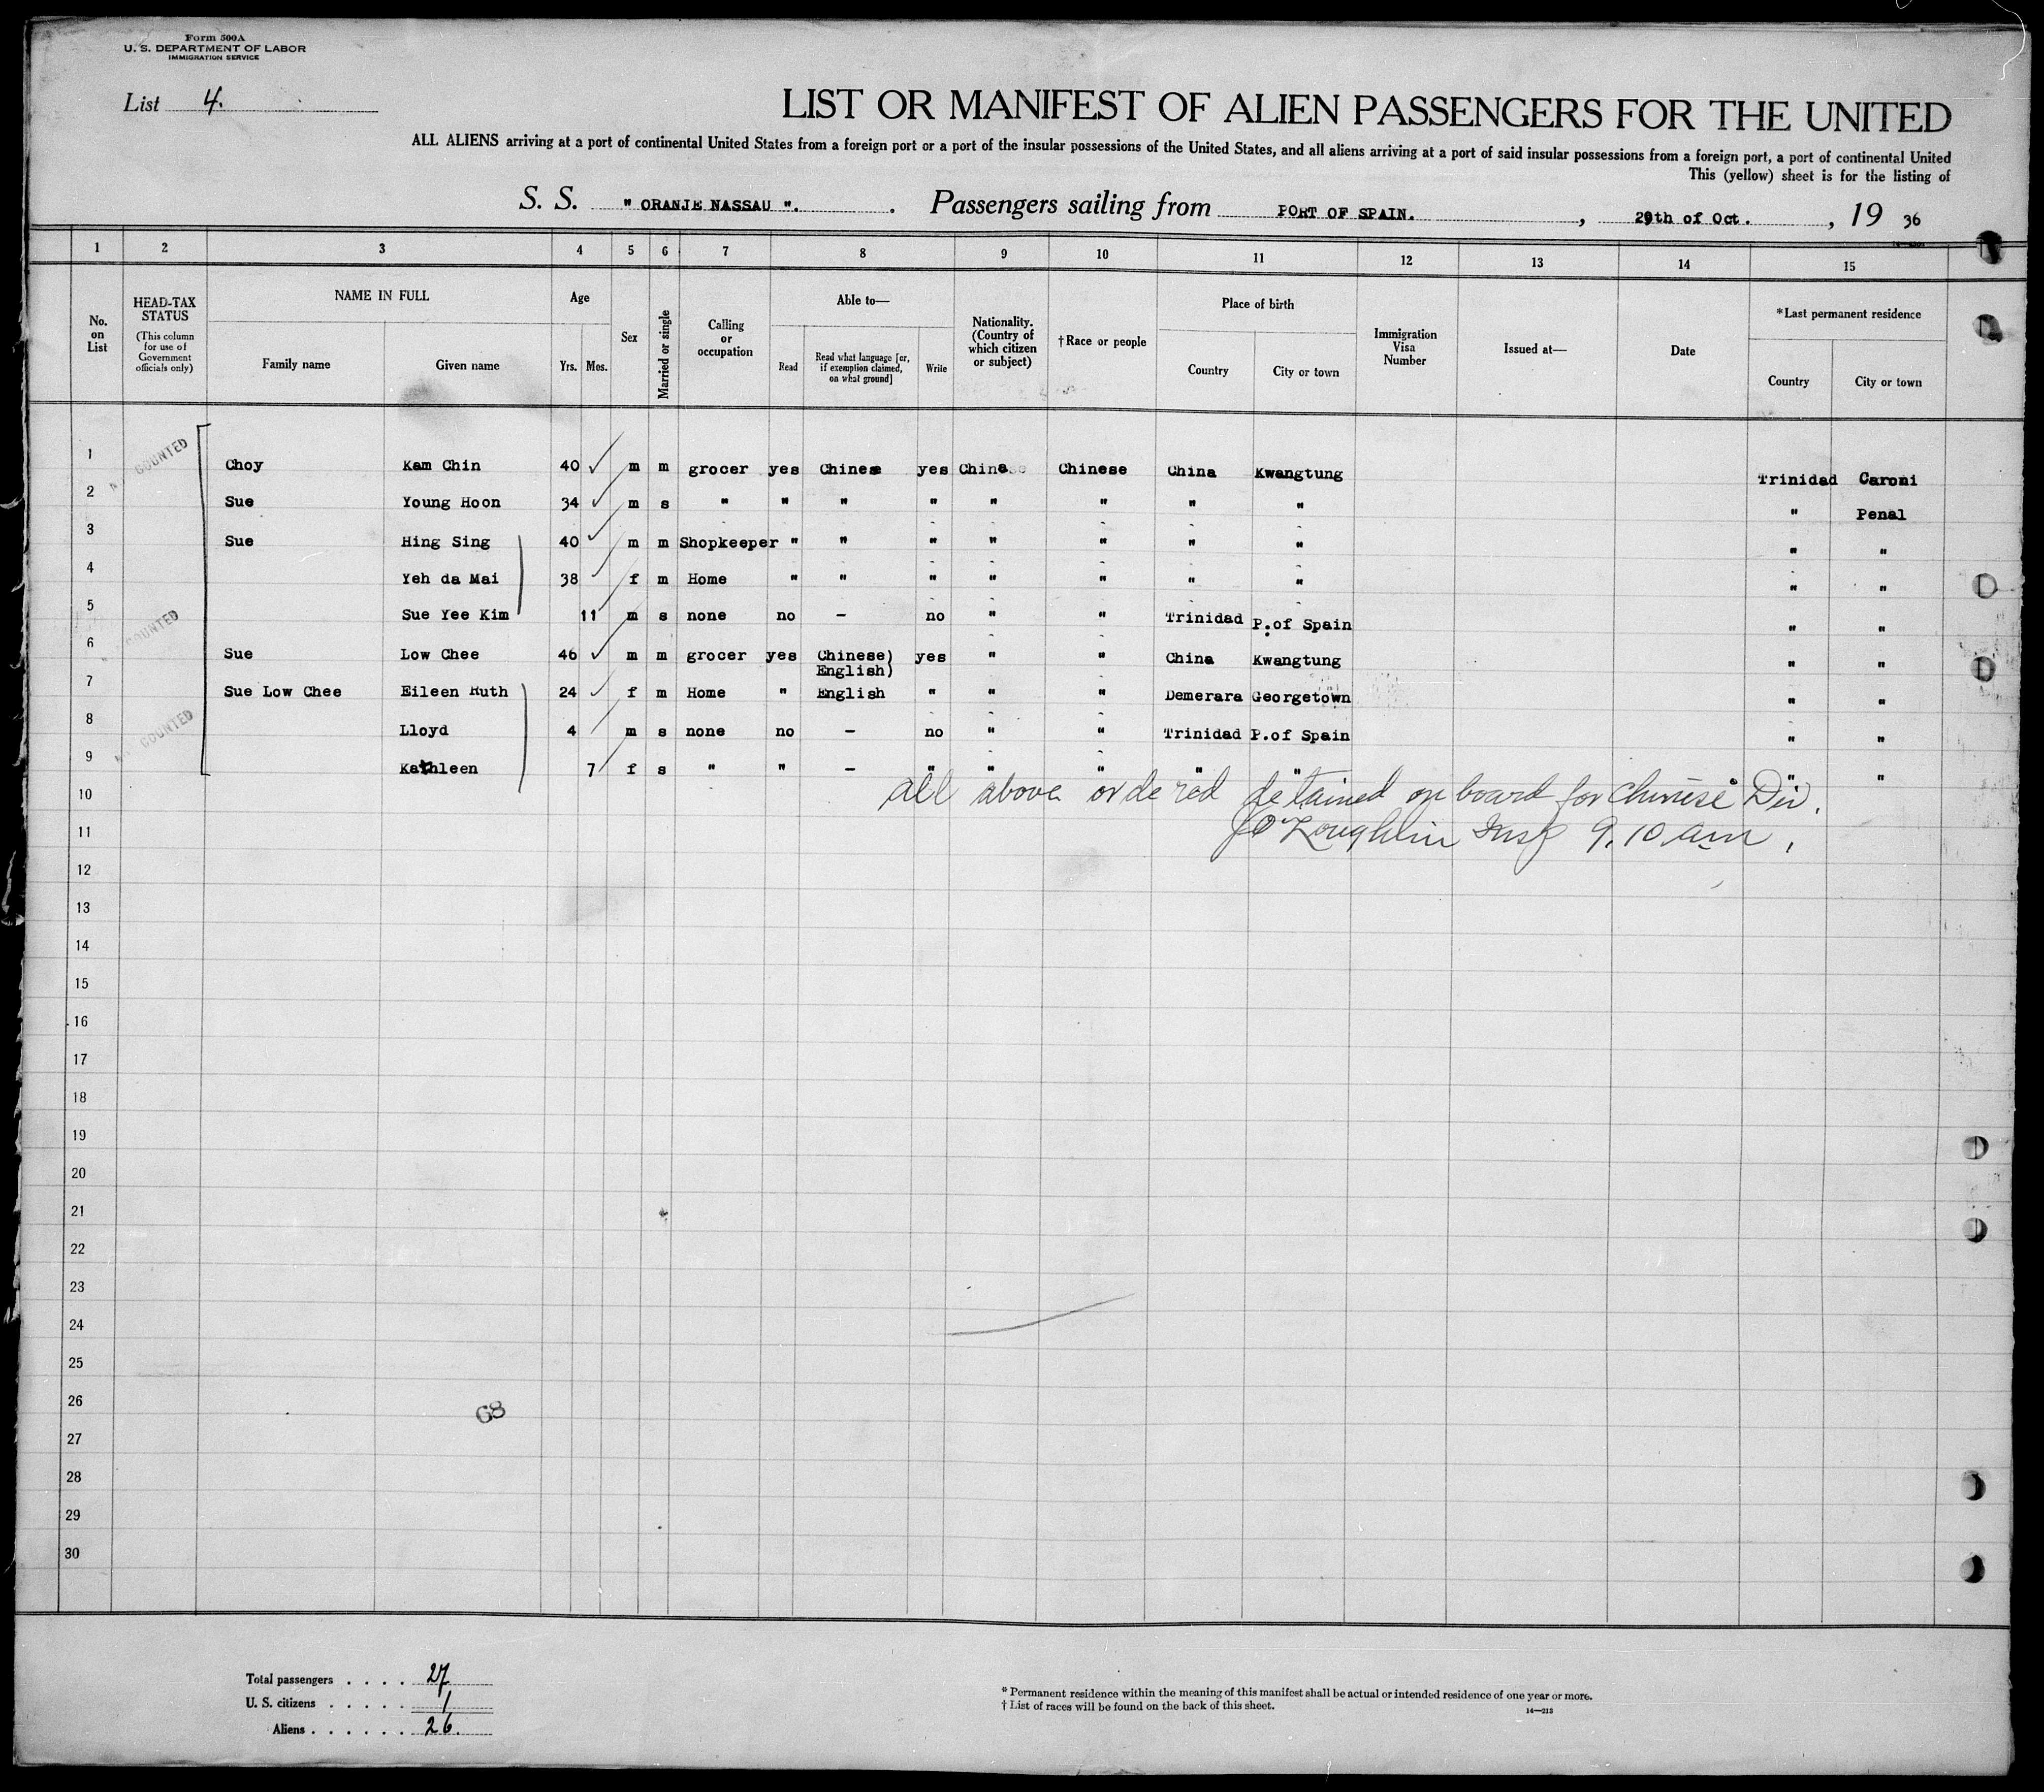 Form 500A
U. S. DEPARTMENT OF LABOR
IMMIGRATION SERVICE
List 4.
LIST OR MANIFEST OF ALIEN PASSENGERS FOR THE UNITED
ALL ALIENS arriving at a port of continental United States from a foreign port or a port of the insular possessions of the United States, and all aliens arriving at a port of said insular possessions from a foreign port, a port of continental United
This (yellow) sheet is for the listing of
S. S. " ORANJE NASSAU ". . Passengers sailing from PORT OF SPAIN. , 29th of Oct. , 19 36
1 2 3 4 5 6 7 8 9 10 11 12 13 14 15
No. on List
HEAD-TAX STATUS
(This column for use of Government officials only)
NAME IN FULL
Family name Given name
Age
Yrs. Mos.
Sex
Married or single
Calling or occupation
Able to—
Read Read what language [or, if exemption claimed, on what ground] Write
Nationality. (Country of which citizen or subject)
†Race or people
Place of birth
Country City or town
Immigration Visa Number
Issued at—
Date
*Last permanent residence
Country City or town
COUNTED
1 Choy Kam Chin 40 m m grocer yes Chinese yes Chinese Chinese China Kwangtung Trinidad Caroni
2 Sue Young Hoon 34 m s " " " " " " " " " Penal
3 Sue Hing Sing 40 m m Shopkeeper " " " " " " " " "
4 Yeh da Mai 38 f m Home " " " " " " " " "
COUNTED
5 Sue Yee Kim 11 m s none no – no " " Trinidad P.of Spain " "
6 Sue Low Chee 46 m m grocer yes Chinese) yes " " China Kwangtung " "
English)
7 Sue Low Chee Eileen Ruth 24 f m Home " English " " " Demerara Georgetown " "
COUNTED
8 Lloyd 4 m s none no – no " " Trinidad P.of Spain " "
9 Kathleen 7 f s " " – " " " " " " "
10 all above ordered detained on board for Chinese Div.
11 JO'Loughlin Insp 9.10 am.
12
13
14
15
16
17
18
19
20
21
22
23
24
25
26
68
27
28
29
30
Total passengers . . . . 27
U. S. citizens . . . . . 1
Aliens . . . . . . 26.
* Permanent residence within the meaning of this manifest shall be actual or intended residence of one year or more.
† List of races will be found on the back of this sheet.
14—213